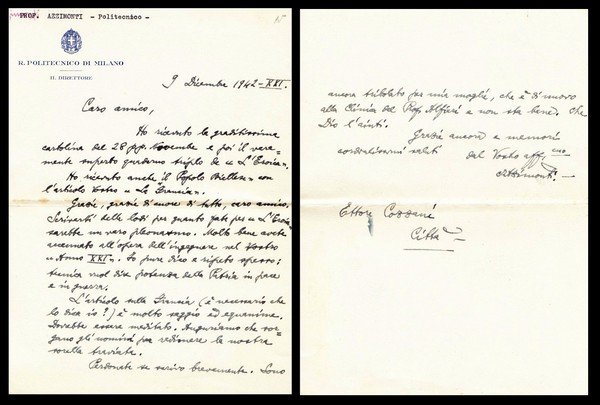 PROF. AZZIMONTI - Politecnico -
15
R. POLITECNICO DI MILANO
IL DIRETTORE
9 Dicembre 1942-XXI.
Caro amico,
Ho ricevuto la graditissima
cartolina del 28 pp. Novembre e poi il vera=
mente superbo quaderno triplo de "L'Eroica".
Ho ricevuto anche il Popolo Biellese con
l'articolo Vostro "La Francia".
Grazie, grazie di cuore di tutto, caro amico.
Scrivervi delle lodi per quanto fate per "L'Eroica"
sarebbe un vero pleonasmo. Molto bene avete
accennato all'opera dell'ingegnere nel Vostro
"Anno XXI". Io pure dico e ripeto spesso:
tecnica vuol dire potenza della Patria in pace
e in guerra.
L'articolo sulla Francia (è necessario che
lo dica io?) è molto saggio ed equanime.
Dovrebbe essere meditato. Auguriamo che sor=
gano gli uomini per redimere la nostra
sorella traviata.
Perdonate se scrivo brevemente. Sono
ancora tribolato per mia moglie, che è di nuovo
alla Clinica del Prof. Alfieri e non sta bene. Che
Dio l'aiuti.
Grazie ancora e memori
cordialissimi saluti
dal Vostro aff.mo
Azzimonti. -
Ettore Cozzani
Città